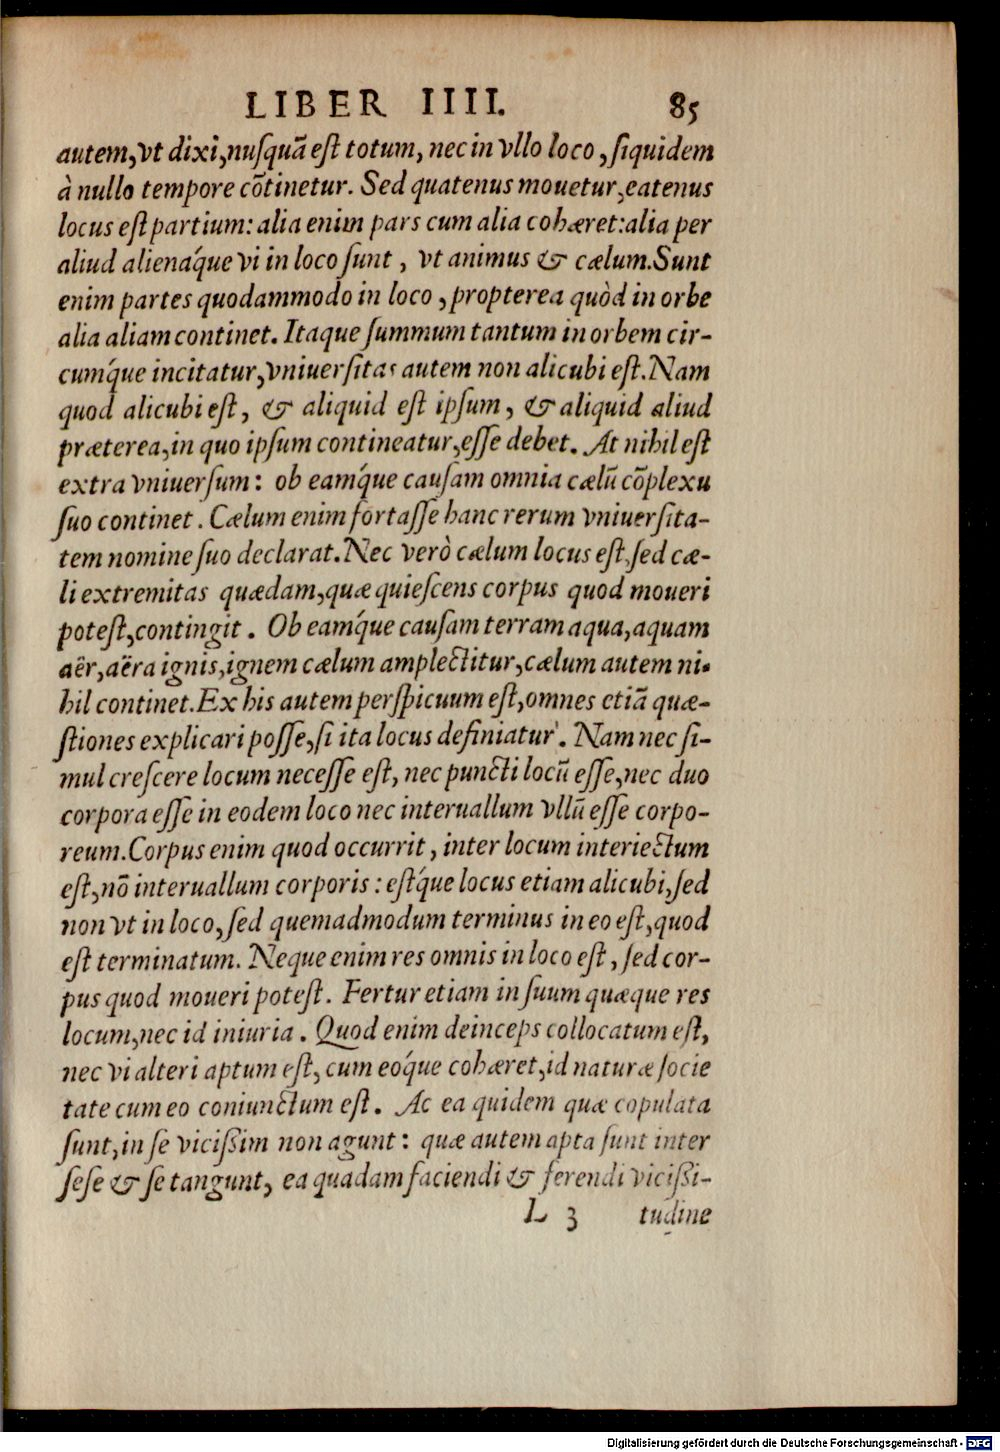 LIBER IIII. 85
autem, vt dixi, nusquã est totum, nec in vllo loco, siquidem
à nullo tempore cõtinetur. Sed quatenus mouetur, eatenus
locus est partium: alia enim pars cum alia cohæret: alia per
aliud alienáque vi in loco sunt, vt animus & cælum. Sunt
enim partes quodammodo in loco, propterea quòd in orbe
alia aliam continet. Itaque summum tantum in orbem cir-
cumq́ue incitatur, vniuersitas autem non alicubi est. Nam
quod alicubi est, & aliquid est ipsum, & aliquid aliud
præterea, in quo ipsum contineatur, esse debet. At nihil est
extra vniuersum: ob eamq́ue causam omnia cælũ cõplexu
suo continet. Cælum enim fortasse hanc rerum vniuersita-
tem nomine suo declarat. Nec verò cælum locus est, sed cæ-
li extremitas quædam, quæ quiescens corpus quod moueri
potest, contingit. Ob eamq́ue causam terram aqua, aquam
aër, aëra ignis, ignem cælum amplectitur, cælum autem ni-
hil continet. Ex his autem perspicuum est, omnes etiã quæ-
stiones explicari posse, si ita locus definiatur. Nam nec si-
mul crescere locum necesse est, nec puncti locũ esse, nec duo
corpora esse in eodem loco nec interuallum vllũ esse corpo-
reum. Corpus enim quod occurrit, inter locum interiectum
est, nõ interuallum corporis: estq́ue locus etiam alicubi, sed
non vt in loco, sed quemadmodum terminus in eo est, quod
est terminatum. Neque enim res omnis in loco est, sed cor-
pus quod moueri potest. Fertur etiam in suum quæque res
locum, nec id iniuria. Quod enim deinceps collocatum est,
nec vi alteri aptum est, cum eoq́ue cohæret, id naturæ socie
tate cum eo coniunctum est. Ac ea quidem quæ copulata
sunt, in se vicißim non agunt: quæ autem apta sunt inter
sese & se tangunt, ea quadam faciendi & ferendi vicißi-
L 3 tudine
Digitalisierung gefördert durch die Deutsche Forschungsgemeinschaft - DFG